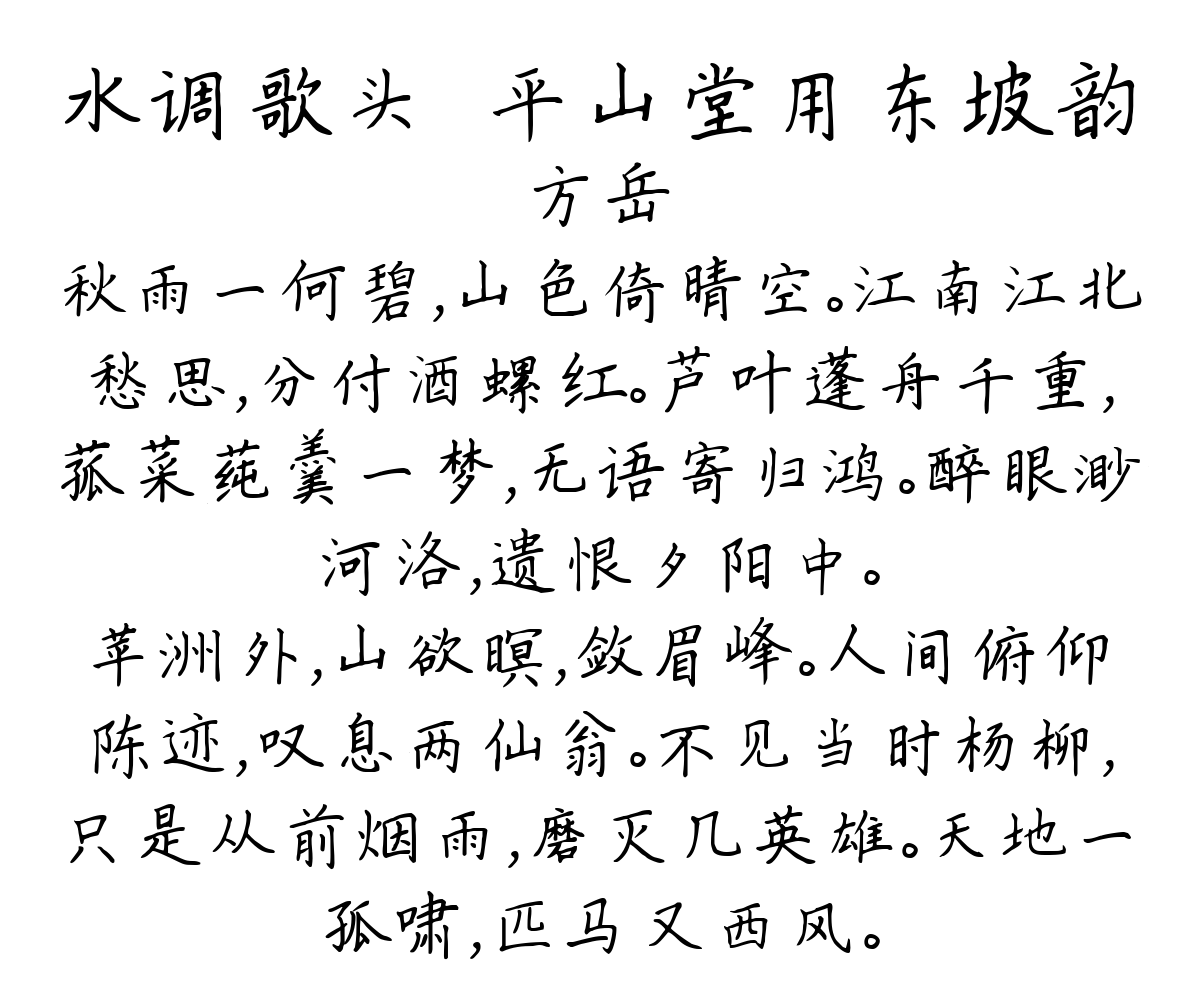 水调歌头 平山堂用东坡韵
方岳
秋雨一何碧,山色倚晴空。江南江北
愁思,分付酒螺红。芦叶蓬舟千重,
菰菜莼羹一梦,无语寄归鸿。醉眼渺
河洛,遗恨夕阳中。
苹洲外,山欲暝,敛眉峰。人间俯仰
陈迹,叹息两仙翁。不见当时杨柳,
只是从前烟雨,磨灭几英雄。天地一
孤啸,匹马又西风。